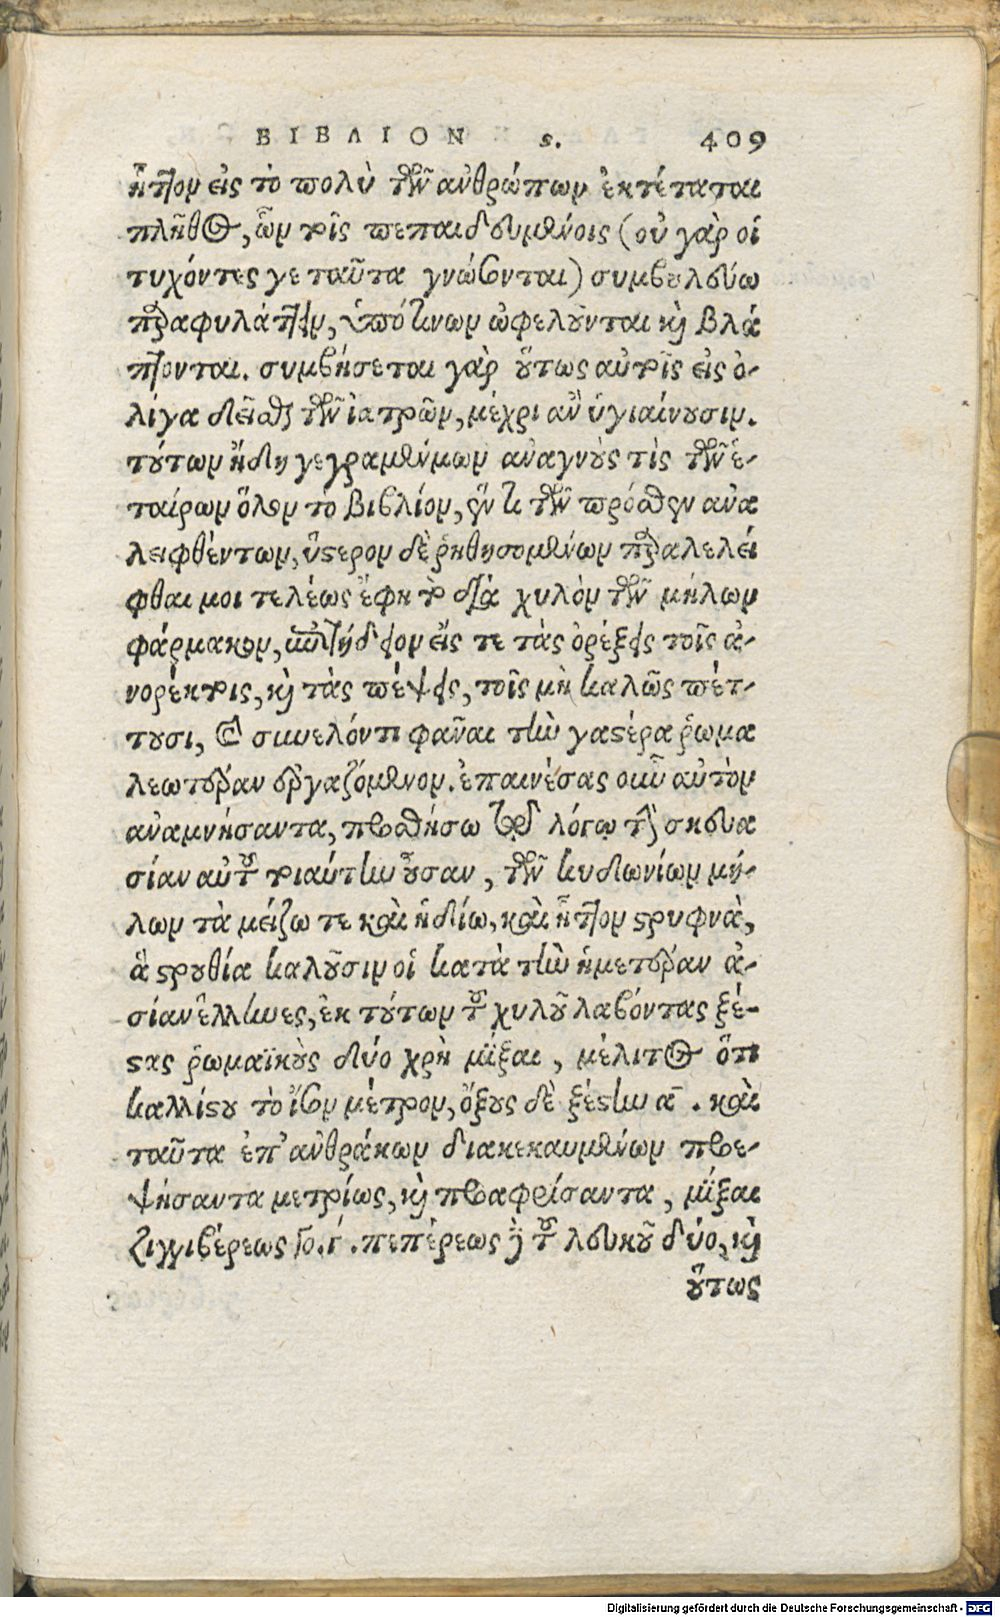 ΒΙΒΛΙΟΝ ϛ. 409
ἧττον εἰς τὸ πολὺ τῶν ἀνθρώπων ἐκτέταται
πλῆθος, ὧν τοῖς πεπαιδευμένοις (οὐ γὰρ οἱ
τυχόντες γε ταῦτα γνώσονται) συμβουλεύω
παραφυλάττειν, ὑπό τινων ὠφελοῦνται καὶ βλά
πτονται. συμβήσεται γὰρ οὕτως αὐτοῖς εἰς ὀ-
λίγα δεῖσθαι τῶν ἰατρῶν, μέχρι ἂν ὑγιαίνουσιν.
τούτων ἤδη γεγραμμένων ἀναγνούς τὶς τῶν ἑ-
ταίρων ὅλον τὸ βιβλίον, ἕν τι τῶν πρόσθεν ἀνα
λειφθέντων, ὕστερον δὲ ῥηθησομένων παραλελεῖ
φθαι μοι τελέως ἔφη τὸ διὰ χυλὸν τῶν μήλων
φάρμακον, ἐπιτήδειον εἴς τε τὰς ὀρέξεις τοῖς ἀ-
νορέκτοις, καὶ τὰς πέψεις, τοῖς μὴ καλῶς πέτ-
τουσι, καὶ συνελόντι φᾶναι τὴν γαστέρα ῥωμα
λεωτέραν ἐργαζόμενον. ἐπαινέσας οὖν αὐτὸν
ἀναμνήσαντα, προσθήσω τῷδε λόγῳ τὴν σκευα
σίαν αὐτοῦ τοιαύτην οὖσαν, τῶν κυδωνίων μή-
λων τὰ μείζω τε καὶ ἡδίω, καὶ ἧττον στρυφνὰ,
ἃ στρουθία καλοῦσιν οἱ κατὰ τὴν ἡμετέραν ἀ-
σίαν ἕλληνες, ἐκ τούτων τοῦ χυλοῦ λαβόντας ξέ-
στας ῥωμαϊκοὺς δύο χρὴ μῖξαι, μέλιτος ὅτι
καλλίστου τὸ ἴσον μέτρον, ὄξους δὲ ξέστην ᾱ. καὶ
ταῦτα ἐπ' ἀνθράκων διακεκαυμένων προε-
ψήσαντα μετρίως, καὶ προαφρίσαντα, μῖξαι
ζιγγιβέρεως γο. γ. πεπέρεως δὲ τοῦ λευκοῦ δύο, καὶ
οὕτως
Digitalisierung gefördert durch die Deutsche Forschungsgemeinschaft - DFG